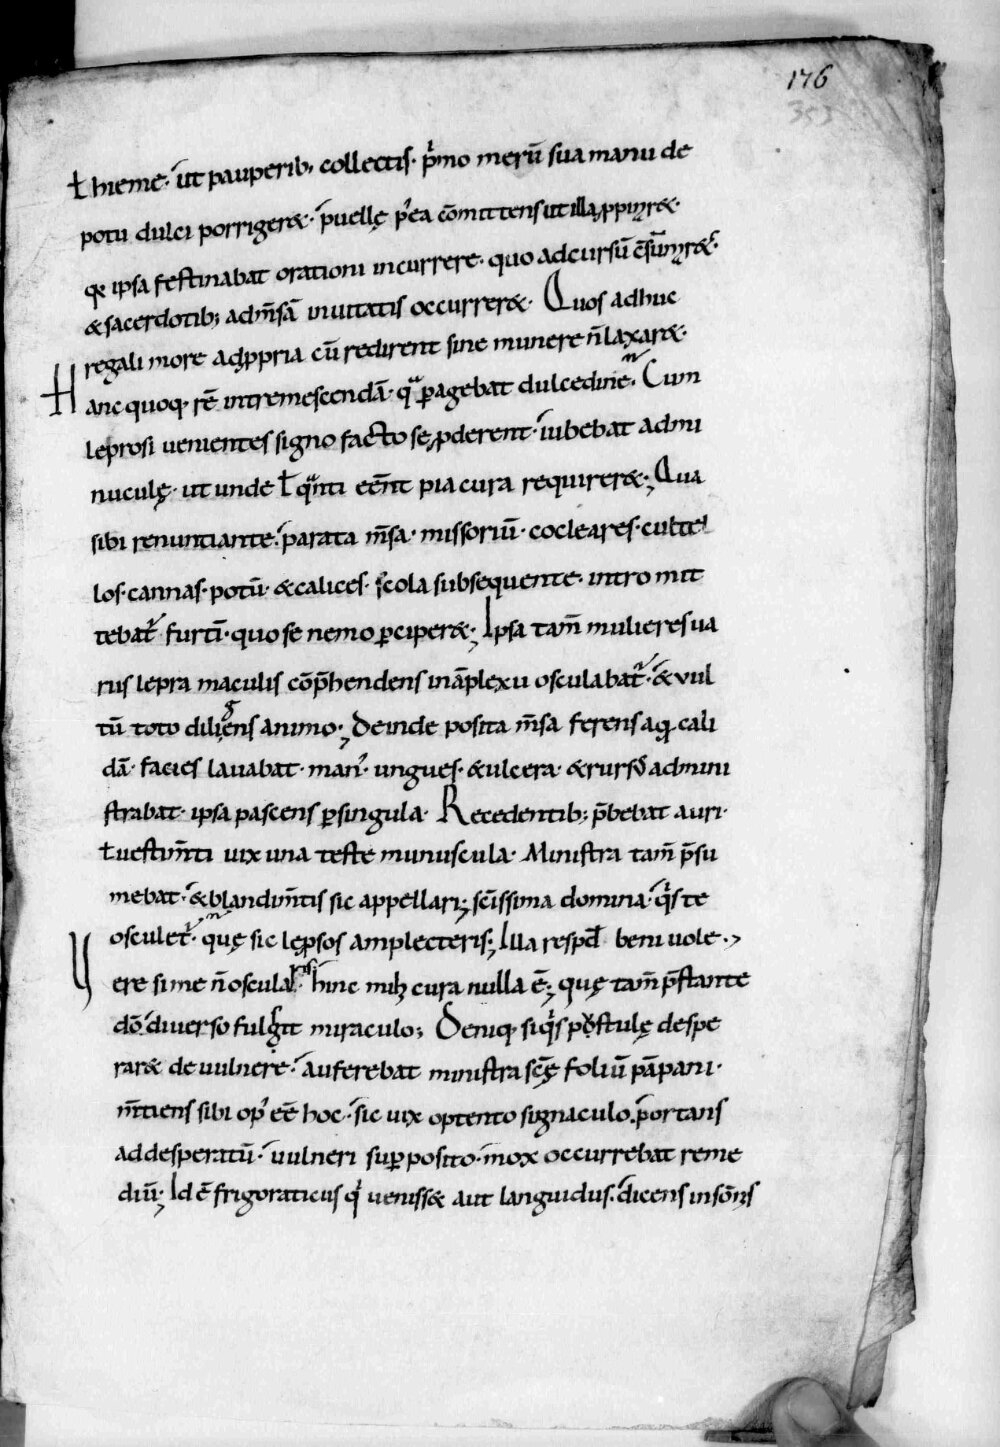 176
353
ł hieme. ut pauperib; collectis. p̍mo merū sua manu de
potu dulci porriger&. puellę p̍ea cōmittens ut illa ꝓpinar&.
q& ipsa festinabat orationi incurrere. quo ad cursū c̄sūmar&.
& sacerdotib; ad m̄sā inuitatis occurrer&. Quos adhuc
regali more ad ꝓpria cū redirent sine munere n̄ laxar&.
Hanc quoq. rē intremescendā. qͣ ꝑagebat dulcedine. Cum
leprosi uenientes signo facto se ꝓderent. iubebat admi
nuculę. ut unde ł qͣnti eēnt pia cura requirer&; Qua
sibi renuntiante. parata m̄sa. missoriū. cocleares. cultel
los. cannas. potū. & calices. scola subsequente. intromit
tebat᷑ furtī. quo se nemo ꝑciper&; Ipsa tam̄ mulieres ua
rus lepra maculis cōp̄hendens in āplexu osculabat᷑. & uul
tū toto diligens animo; Deinde posita m̄sa ferens aq̄ cali
dā. facies lauabat. man᷒. ungues. & ulcera. & rursū admini
strabat. ipsa pascens ꝑ singula. Recedentib; p̄bebat auri.
ł uestim̄ti uix una teste munuscula. Ministra tam̄ p̄su
mebat. & blandim̄tis sic appellari; sc̄issima domina. qͥs te
osculet᷑. quę sic lępsos amplecteris; Illa respd̄ beniuole.
Vere si me n̄ oscularis. hinc mihi cura nulla ē; quę tam̄ p̄stante
dō. diuerso fulgit miraculo; Deniq. siqͥs pustulę despe
rar& de uulnere. Auferebat ministra scę̄ foliū pāpani.
m̄tiens sibi op᷒ eē hoc. sic uix optento signaculo. portans
ad desperatū. uulneri suꝑposito. mox occurrebat reme
diū; Idē frigoraticus qͥ ueniss& aut languidus. dicens in sōnis